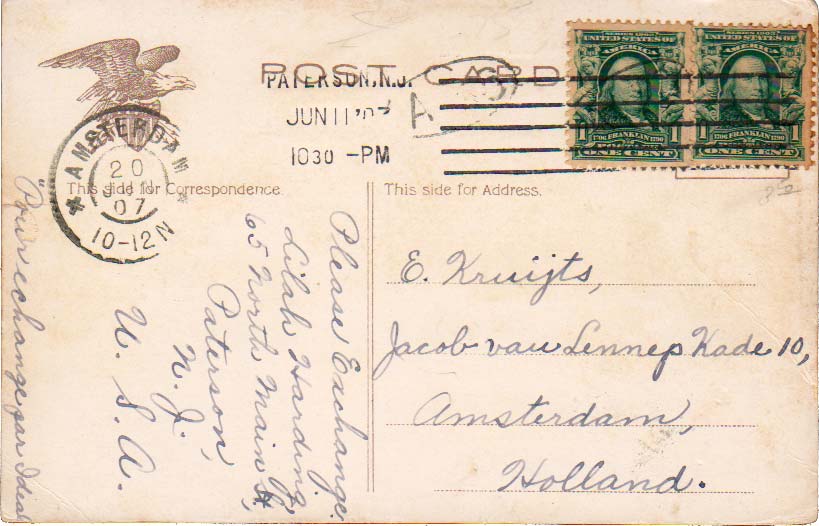 POST CARD
PATERSON, N.J.
JUN 11 '07
1030 -PM
A
SERIES 1902
UNITED STATES OF
AMERICA
1 1
1706 FRANKLIN 1790
POSTAGE
ONE CENT
SERIES 1902
UNITED STATES OF
AMERICA
1 1
1706 FRANKLIN 1790
POSTAGE
ONE CENT
* AMSTERDAM *
20
JUN
07
10-12N
This side for Correspondence.
This side for Address.
Please Exchange.
Lilah Harding,
65 North Main St,
Paterson,
N. J.
U. S. A.
"Pour echange par Ideal
E. Kruijts,
Jacob van Lennep Kade 10,
Amsterdam,
Holland.